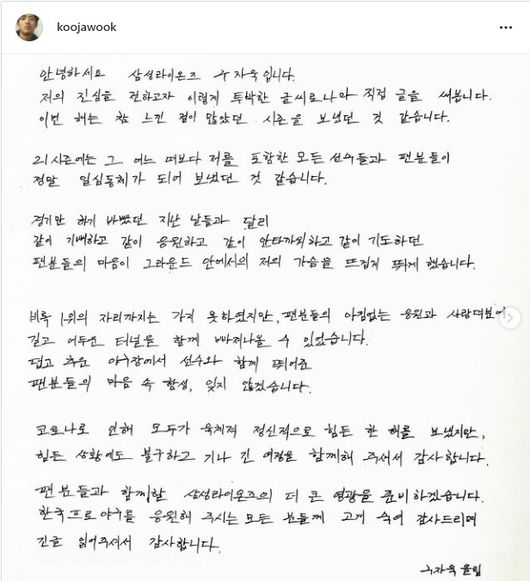 koojawook
안녕하세요 삼성라이온즈 구자욱입니다.
저의 진심을 전하고자 이렇게 투박한 글씨로나마 직접 글을 써봅니다.
이번 해는 참 느낀 점이 많았던 시즌을 보냈던 것 같습니다.
21시즌에는 그 어느 때보다 저를 포함한 모든 선수들과 팬분들이
정말 일심동체가 되어 보냈던 것 같습니다.
경기만 하기 바빴던 지난 날들과 달리
같이 기뻐하고 같이 응원하고 같이 안타까워하고 같이 기도하던
팬분들의 마음이 그라운드 안에서의 저의 가슴을 뜨겁게 뛰게 했습니다.
비록 1위의 자리까지는 가지 못하였지만, 팬분들의 아낌없는 응원과 사랑덕분에
길고 어두운 터널을 함께 빠져나올 수 있었습니다.
덥고 추운 야구장에서 선수와 함께 뛰어준
팬분들의 마음 속 함성, 잊지 않겠습니다.
코로나로 인해 모두가 육체적 정신적으로 힘든 한 해를 보냈지만,
힘든 상황에도 불구하고 기나 긴 여정을 함께해 주셔서 감사합니다.
팬분들과 함께할 삼성라이온즈의 더 큰 영광을 준비하겠습니다.
한국프로야구를 응원해 주시는 모든 분들께 고개 숙여 감사드리며
긴글 읽어주셔서 감사합니다.
구자욱 올림